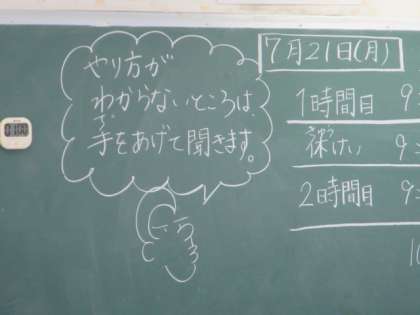 やり方が
わからないところは、
手をあげて聞きます。
7月21日(月)
1時間目 9:
休けい 9:
2時間目 9
10